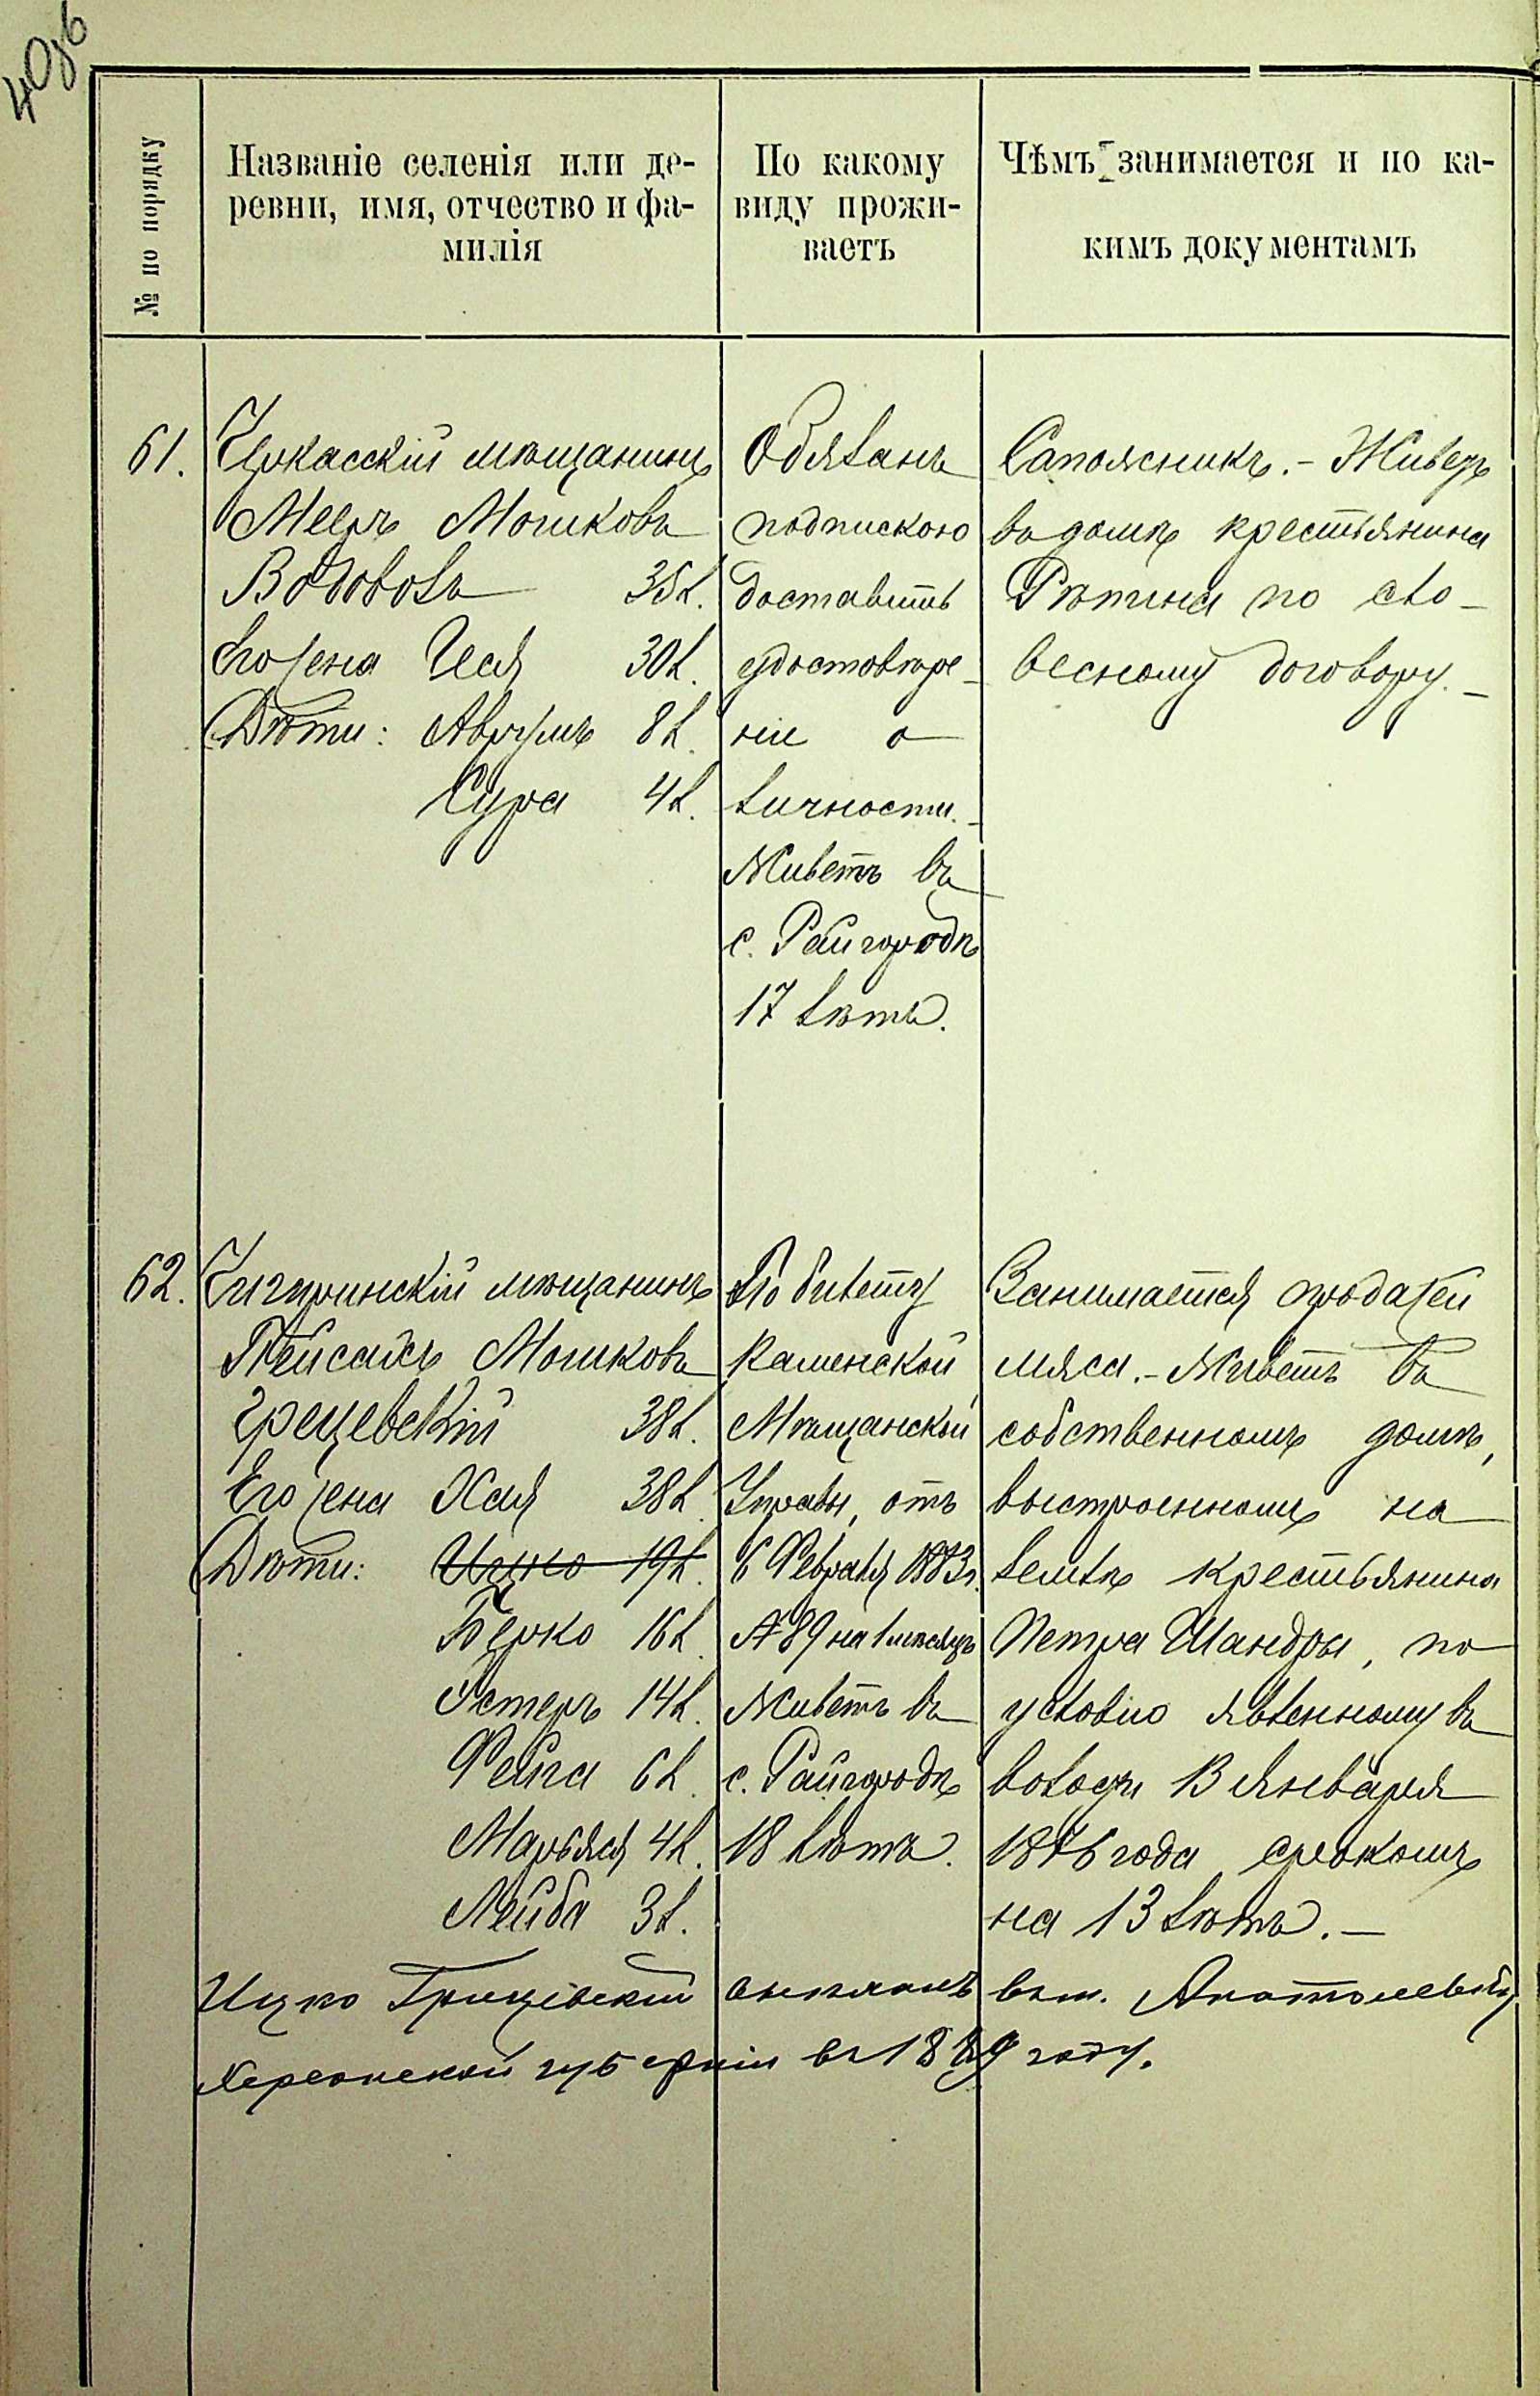 40об
№ по порядку
Названіе селенія или де-
ревни, имя, отчество и фа-
милія
По какому
виду прожи-
ваетъ
Чѣмъ занимается и по ка-
кимъ документамъ
61.
Черкасскій мѣщанинъ
Мееръ Мошковъ
Водовозъ 35 л.
Его жена Чея 30 л.
Дѣти: Аврумъ 8 л.
Сура 4 л.
Обязанъ
подпискою
доставить
удостовѣре-
ніе о
личности.-
Живетъ въ
с. Райгородѣ
17 лѣтъ.
Сапожникъ.- Живетъ
въ домѣ крестьянина
Рѣпина по сло-
весному договору.-
62.
Чигиринскій мѣщанинъ
Пейсахъ Мошковъ
Грецевскій 38 л.
Его жена Хая 38 л.
Дѣти: Ицко 19 л.
Берко 16 л.
Эстеръ 14 л.
Фейга 6 л.
Марьяся 4 л.
Лейба 3 л.
По билету
Каменской
Мѣщанской
Управы, отъ
6 Февраля 1883 г.
№ 89 на 1 мѣсяцъ
Живетъ въ
с. Райгородѣ
18 лѣтъ.
Занимается продажей
мяса.- Живетъ въ
собственномъ домѣ,
выстроенномъ на
землѣ крестьянина
Петра Шандры, по
условію явленному въ
волости 13 Января
1876 года срокомъ
на 13 лѣтъ.-
Ицко Грицевскій въ м.
Херсонской губерніи въ 1889 году.